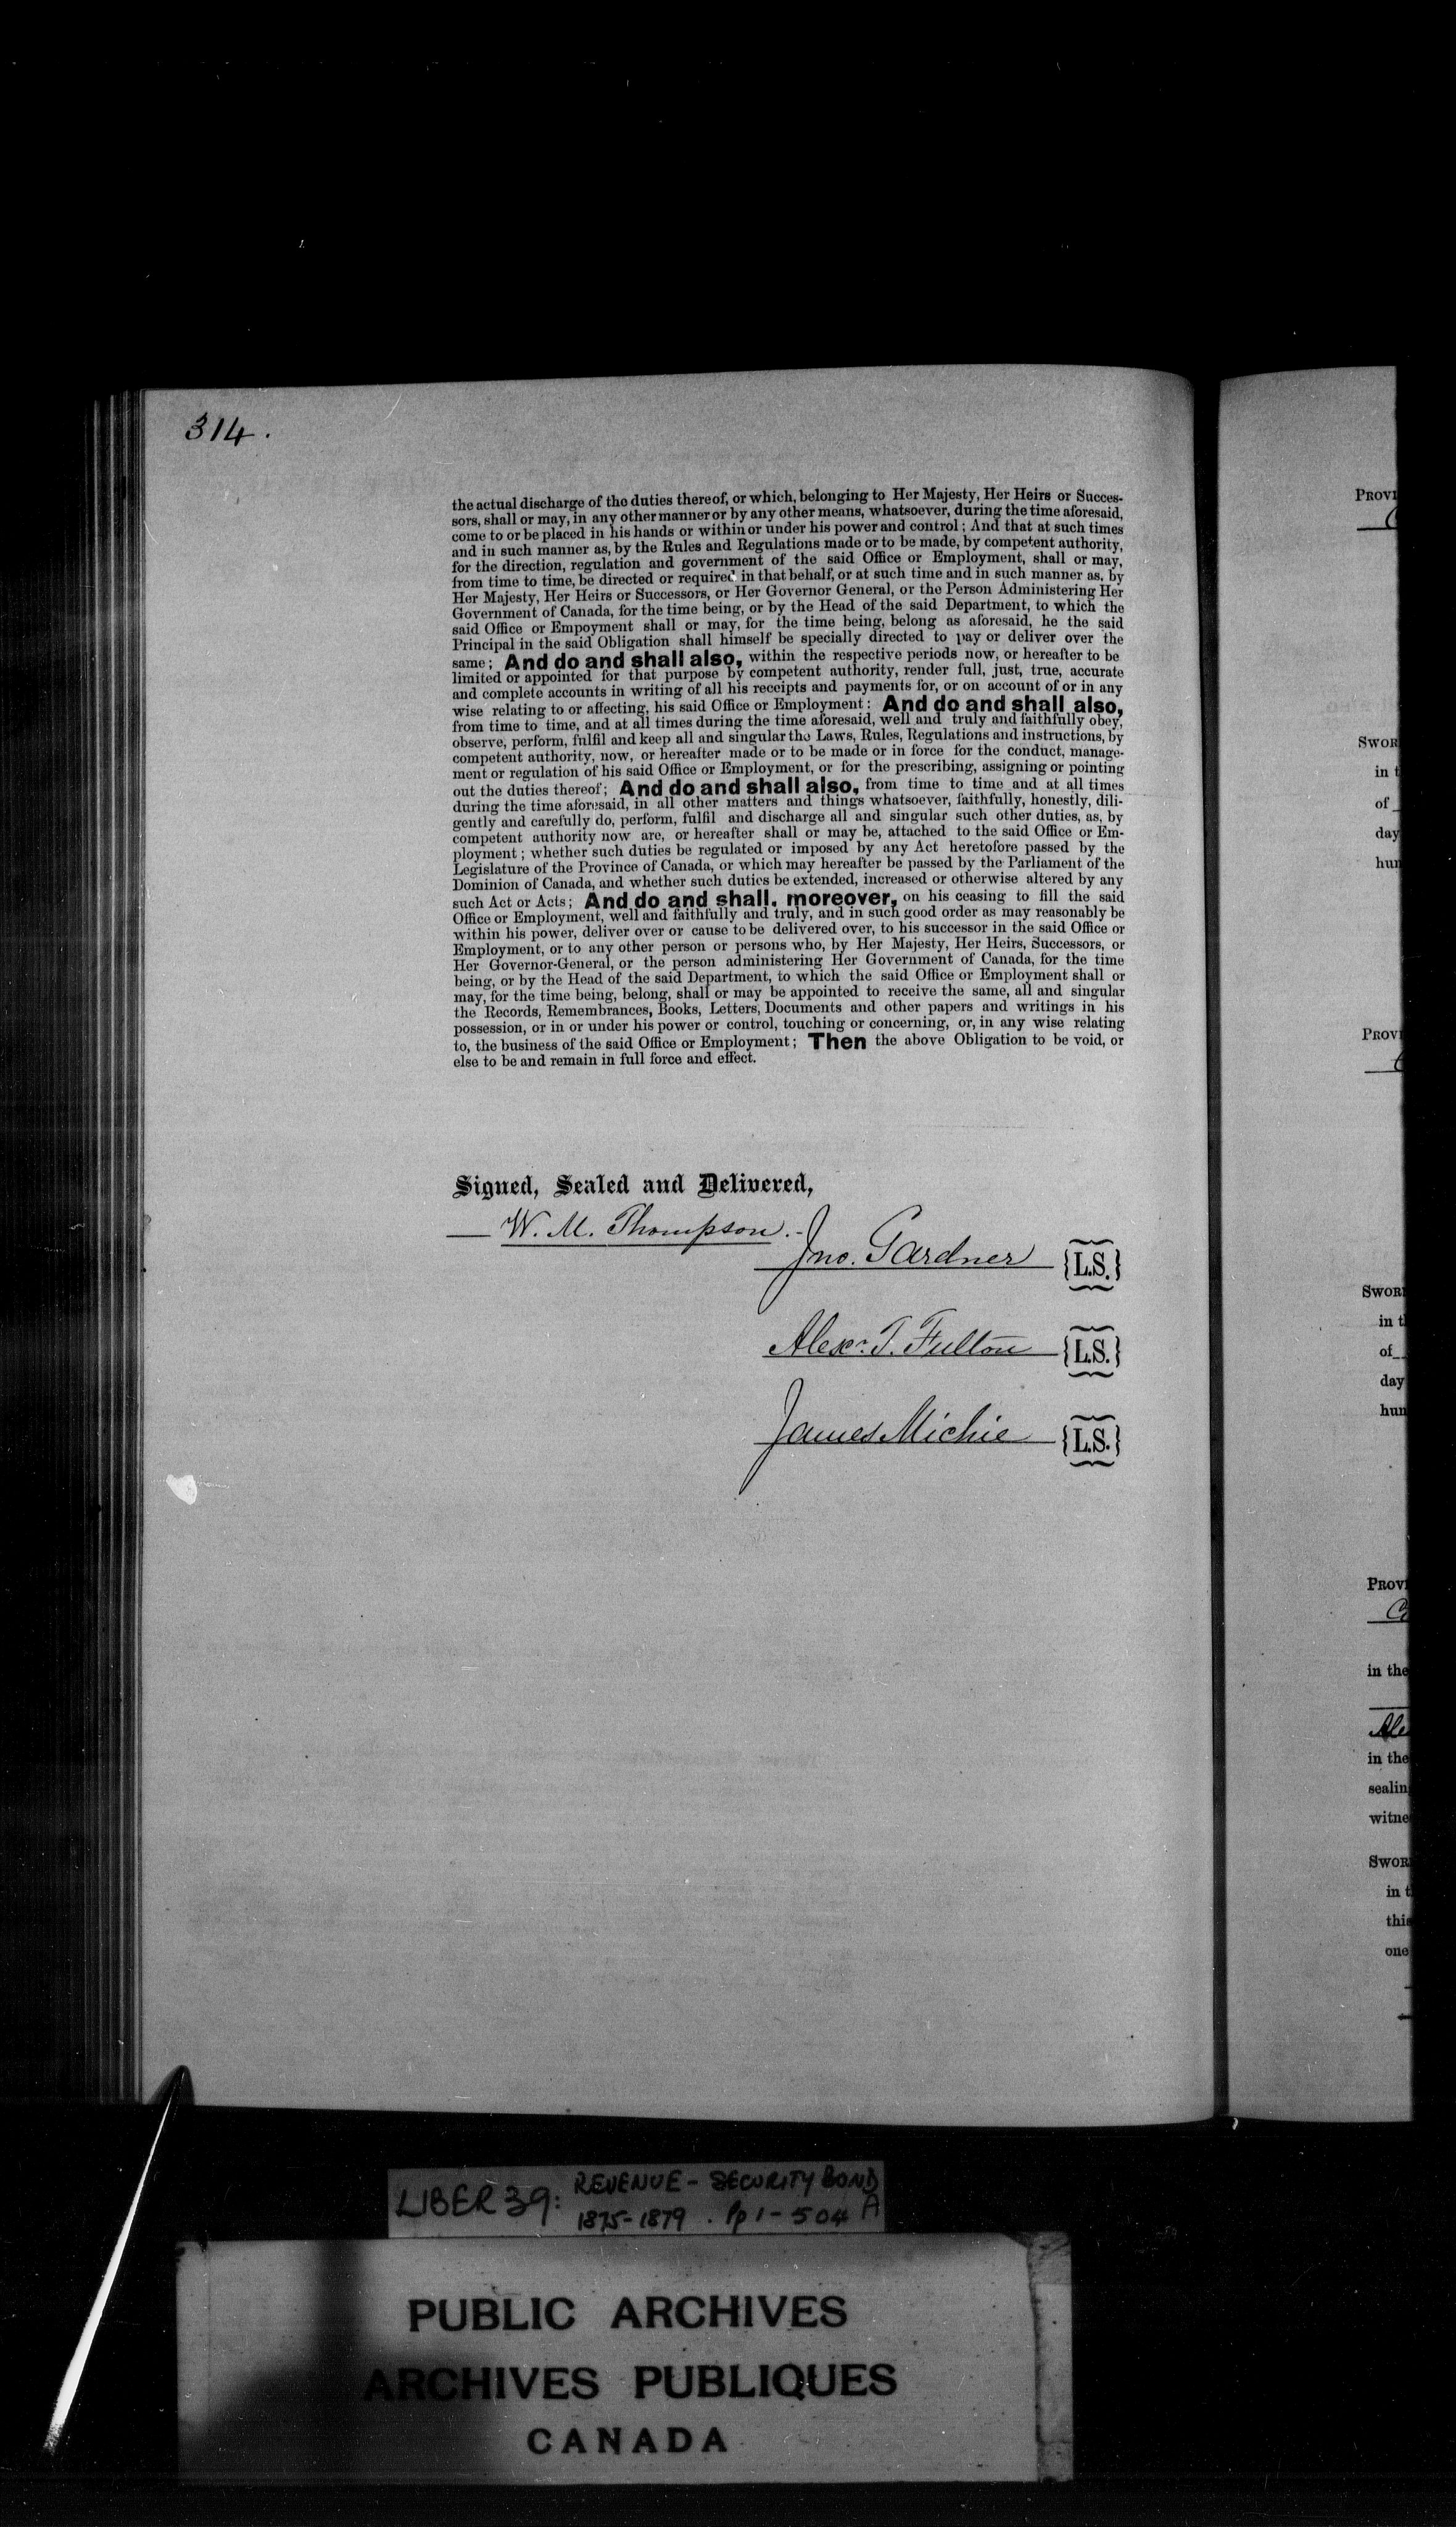 314.
the actual discharge of the duties thereof, or which, belonging to Her Majesty, Her Heirs or Succes-
sors, shall or may, in any other manner or by any other means, whatsoever, during the time aforesaid,
come to or be placed in his hands or within or under his power and control; And that at such times
and in such manner as, by the Rules and Regulations made or to be made, by competent authority,
for the direction, regulation and government of the said Office or Employment, shall or may,
from time to time, be directed or required in that behalf, or at such time and in such manner as, by
Her Majesty, Her Heirs or Successors, or Her Governor General, or the Person Administering Her
Government of Canada, for the time being, or by the Head of the said Department, to which the
said Office or Empoyment shall or may, for the time being, belong as aforesaid, he the said
Principal in the said Obligation shall himself be specially directed to pay or deliver over the
same; And do and shall also, within the respective periods now, or hereafter to be
limited or appointed for that purpose by competent authority, render full, just, true, accurate
and complete accounts in writing of all his receipts and payments for, or on account of or in any
wise relating to or affecting, his said Office or Employment: And do and shall also,
from time to time, and at all times during the time aforesaid, well and truly and faithfully obey,
observe, perform, fulfil and keep all and singular the Laws, Rules, Regulations and instructions, by
competent authority, now, or hereafter made or to be made or in force for the conduct, manage-
ment or regulation of his said Office or Employment, or for the prescribing, assigning or pointing
out the duties thereof; And do and shall also, from time to time and at all times
during the time aforesaid, in all other matters and things whatsoever, faithfully, honestly, dili-
gently and carefully do, perform, fulfil and discharge all and singular such other duties, as, by
competent authority now are, or hereafter shall or may be, attached to the said Office or Em-
ployment; whether such duties be regulated or imposed by any Act heretofore passed by the
Legislature of the Province of Canada, or which may hereafter be passed by the Parliament of the
Dominion of Canada, and whether such duties be extended, increased or otherwise altered by any
such Act or Acts; And do and shall, moreover, on his ceasing to fill the said
Office or Employment, well and faithfully and truly, and in such good order as may reasonably be
within his power, deliver over or cause to be delivered over, to his successor in the said Office or
Employment, or to any other person or persons who, by Her Majesty, Her Heirs, Successors, or
Her Governor-General, or the person administering Her Government of Canada, for the time
being, or by the Head of the said Department, to which the said Office or Employment shall or
may, for the time being, belong, shall or may be appointed to receive the same, all and singular
the Records, Remembrances, Books, Letters, Documents and other papers and writings in his
possession, or in or under his power or control, touching or concerning, or, in any wise relating
to, the business of the said Office or Employment; Then the above Obligation to be void, or
else to be and remain in full force and effect.
Signed, Sealed and Delivered,
W. M. Thompson.
Jno. Gardner {L.S.}
Alexr. T. Fulton {L.S.}
James Michie {L.S.}
PROVI
SWOR
in t
of
day
hun
PROVI
SWORN
in th
of
day
hun
PROVI
in the
Ale
in the
sealin
witne
SWOR
in t
this
one
LIBER 39: REVENUE - SECURITY BOND
1875-1879. Pp 1-504 A
PUBLIC ARCHIVES
ARCHIVES PUBLIQUES
CANADA